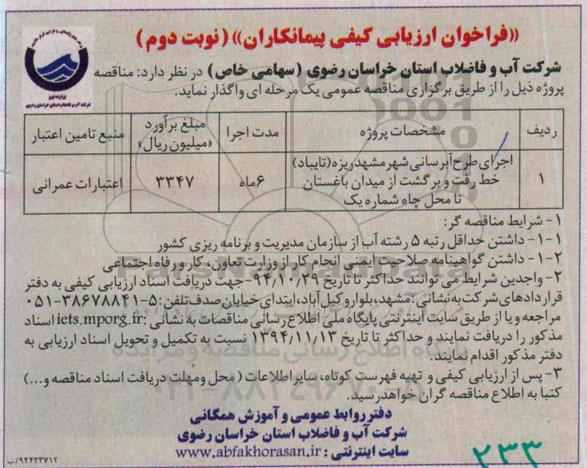 «فراخوان ارزیابی کیفی پیمانکاران» (نوبت دوم)
شرکت آب و فاضلاب استان خراسان رضوی (سهامی خاص) در نظر دارد: مناقصه
پروژه ذیل را از طریق برگزاری مناقصه عمومی یک مرحله ای واگذار نماید.
ردیف
مشخصات پروژه
مدت اجرا
مبلغ برآورد «میلیون ریال»
منبع تامین اعتبار
۱
اجرای طرح آبرسانی شهر مشهدریزه (تایباد)
خط رفت و برگشت از میدان باغستان
تا محل چاه شماره یک
۶ ماه
۳۳۴۷
اعتبارات عمرانی
۱- شرایط مناقصه گر:
۱-۱- داشتن حداقل رتبه ۵ رشته آب از سازمان مدیریت و برنامه ریزی کشور
۱-۲- داشتن گواهینامه صلاحیت ایمنی انجام کار از وزارت تعاون، کار و رفاه اجتماعی
۲- واجدین شرایط می توانند حداکثر تا تاریخ ۹۴،۱۰،۲۹- جهت دریافت اسناد ارزیابی کیفی به دفتر
قراردادهای شرکت به نشانی: مشهد، بلوار وکیل آباد، ابتدای خیابان صدف تلفن: ۵-۳۸۶۷۸۸۴۱-۰۵۱
مراجعه و یا از طریق سایت اینترنتی پایگاه ملی اطلاع رسانی مناقصات به نشانی: iets.mporg.ir اسناد
مذکور را دریافت نمایند و حداکثر تا تاریخ ۱۳۹۴،۱۱،۱۳ نسبت به تکمیل و تحویل اسناد ارزیابی به
دفتر مذکور اقدام نمایند.
۳- پس از ارزیابی کیفی و تهیه فهرست کوتاه، سایر اطلاعات (محل و مهلت دریافت اسناد مناقصه و...)
کتبا به اطلاع مناقصه گران خواهد رسید.
دفتر روابط عمومی و آموزش همگانی
شرکت آب و فاضلاب استان خراسان رضوی
سایت اینترنتی: www.abfakhorasan.ir
۲۳۳
۹۴۴۳۳۷۱۲/ب